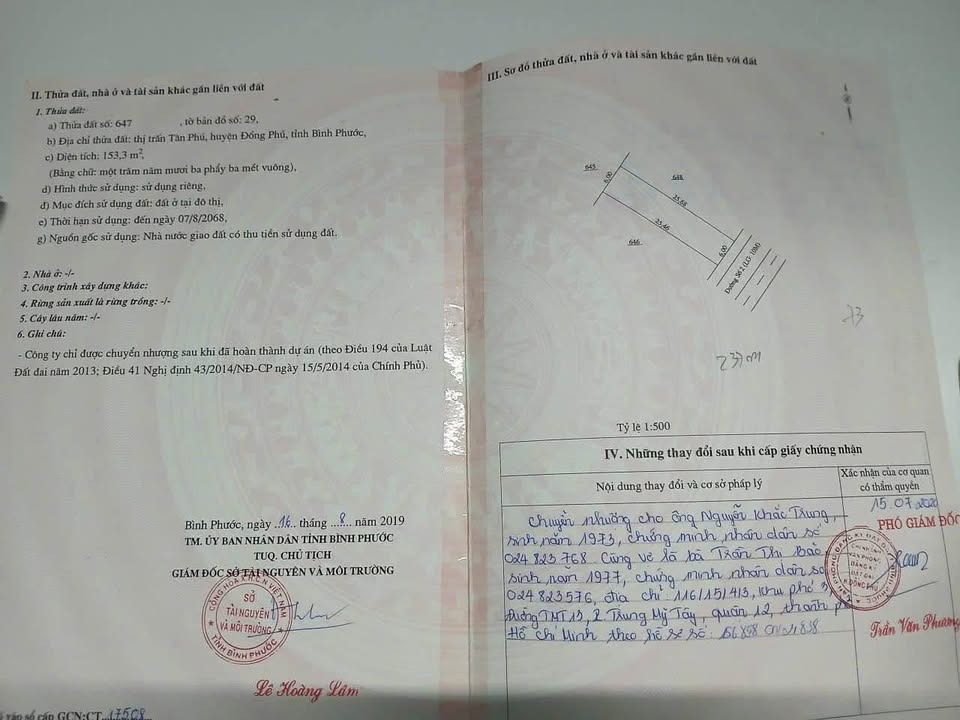 II. Thửa đất, nhà ở và tài sản khác gắn liền với đất
1. Thửa đất:
a) Thửa đất số: 647 , tờ bản đồ số: 29,
b) Địa chỉ thửa đất: thị trấn Tân Phú, huyện Đồng Phú, tỉnh Bình Phước,
c) Diện tích: 153,3 m²,
(Bằng chữ: một trăm năm mươi ba phẩy ba mét vuông),
d) Hình thức sử dụng: sử dụng riêng,
đ) Mục đích sử dụng đất: đất ở tại đô thị,
e) Thời hạn sử dụng: đến ngày 07/8/2068,
g) Nguồn gốc sử dụng: Nhà nước giao đất có thu tiền sử dụng đất.
2. Nhà ở: -/-
3. Công trình xây dựng khác:
4. Rừng sản xuất là rừng trồng: -/-
5. Cây lâu năm: -/-
6. Ghi chú:
- Công ty chỉ được chuyển nhượng sau khi đã hoàn thành dự án (theo Điều 194 của Luật
Đất đai năm 2013; Điều 41 Nghị định 43/2014/NĐ-CP ngày 15/5/2014 của Chính Phủ).
Bình Phước, ngày 16 tháng 8 năm 2019
TM. ỦY BAN NHÂN DÂN TỈNH BÌNH PHƯỚC
TUQ. CHỦ TỊCH
GIÁM ĐỐC SỞ TÀI NGUYÊN VÀ MÔI TRƯỜNG
CỘNG HOÀ X.H.C.N VIỆT NAM
SỞ
TÀI NGUYÊN
VÀ MÔI TRƯỜNG
TỈNH BÌNH PHƯỚC
Lê Hoàng Lâm
vào sổ cấp GCN:CT 17508
III. Sơ đồ thửa đất, nhà ở và tài sản khác gắn liền với đất
645
6,00
648
25,68
25,46
646
6,00
Đường Số 2 (LG: 10M)
Tỷ lệ 1:500
IV. Những thay đổi sau khi cấp giấy chứng nhận
Nội dung thay đổi và cơ sở pháp lý
Xác nhận của cơ quan
có thẩm quyền
Chuyển nhượng cho ông Nguyễn Khắc Trung,
sinh năm 1973, chứng minh nhân dân số
024823768. Cùng vợ là bà Trần Thị Bảo
sinh năm 1977, chứng minh nhân dân số
024823576, địa chỉ 116/15/413, khu phố 3,
Đường TMT13, Trung Mỹ Tây, quận 12, thành phố
Hồ Chí Minh theo hồ sơ số:
15.07.2020
PHÓ GIÁM ĐỐC
CHI NHÁNH
VĂN PHÒNG
ĐĂNG KÝ
ĐẤT ĐAI
H.ĐỒNG PHÚ
Trần Văn Phương